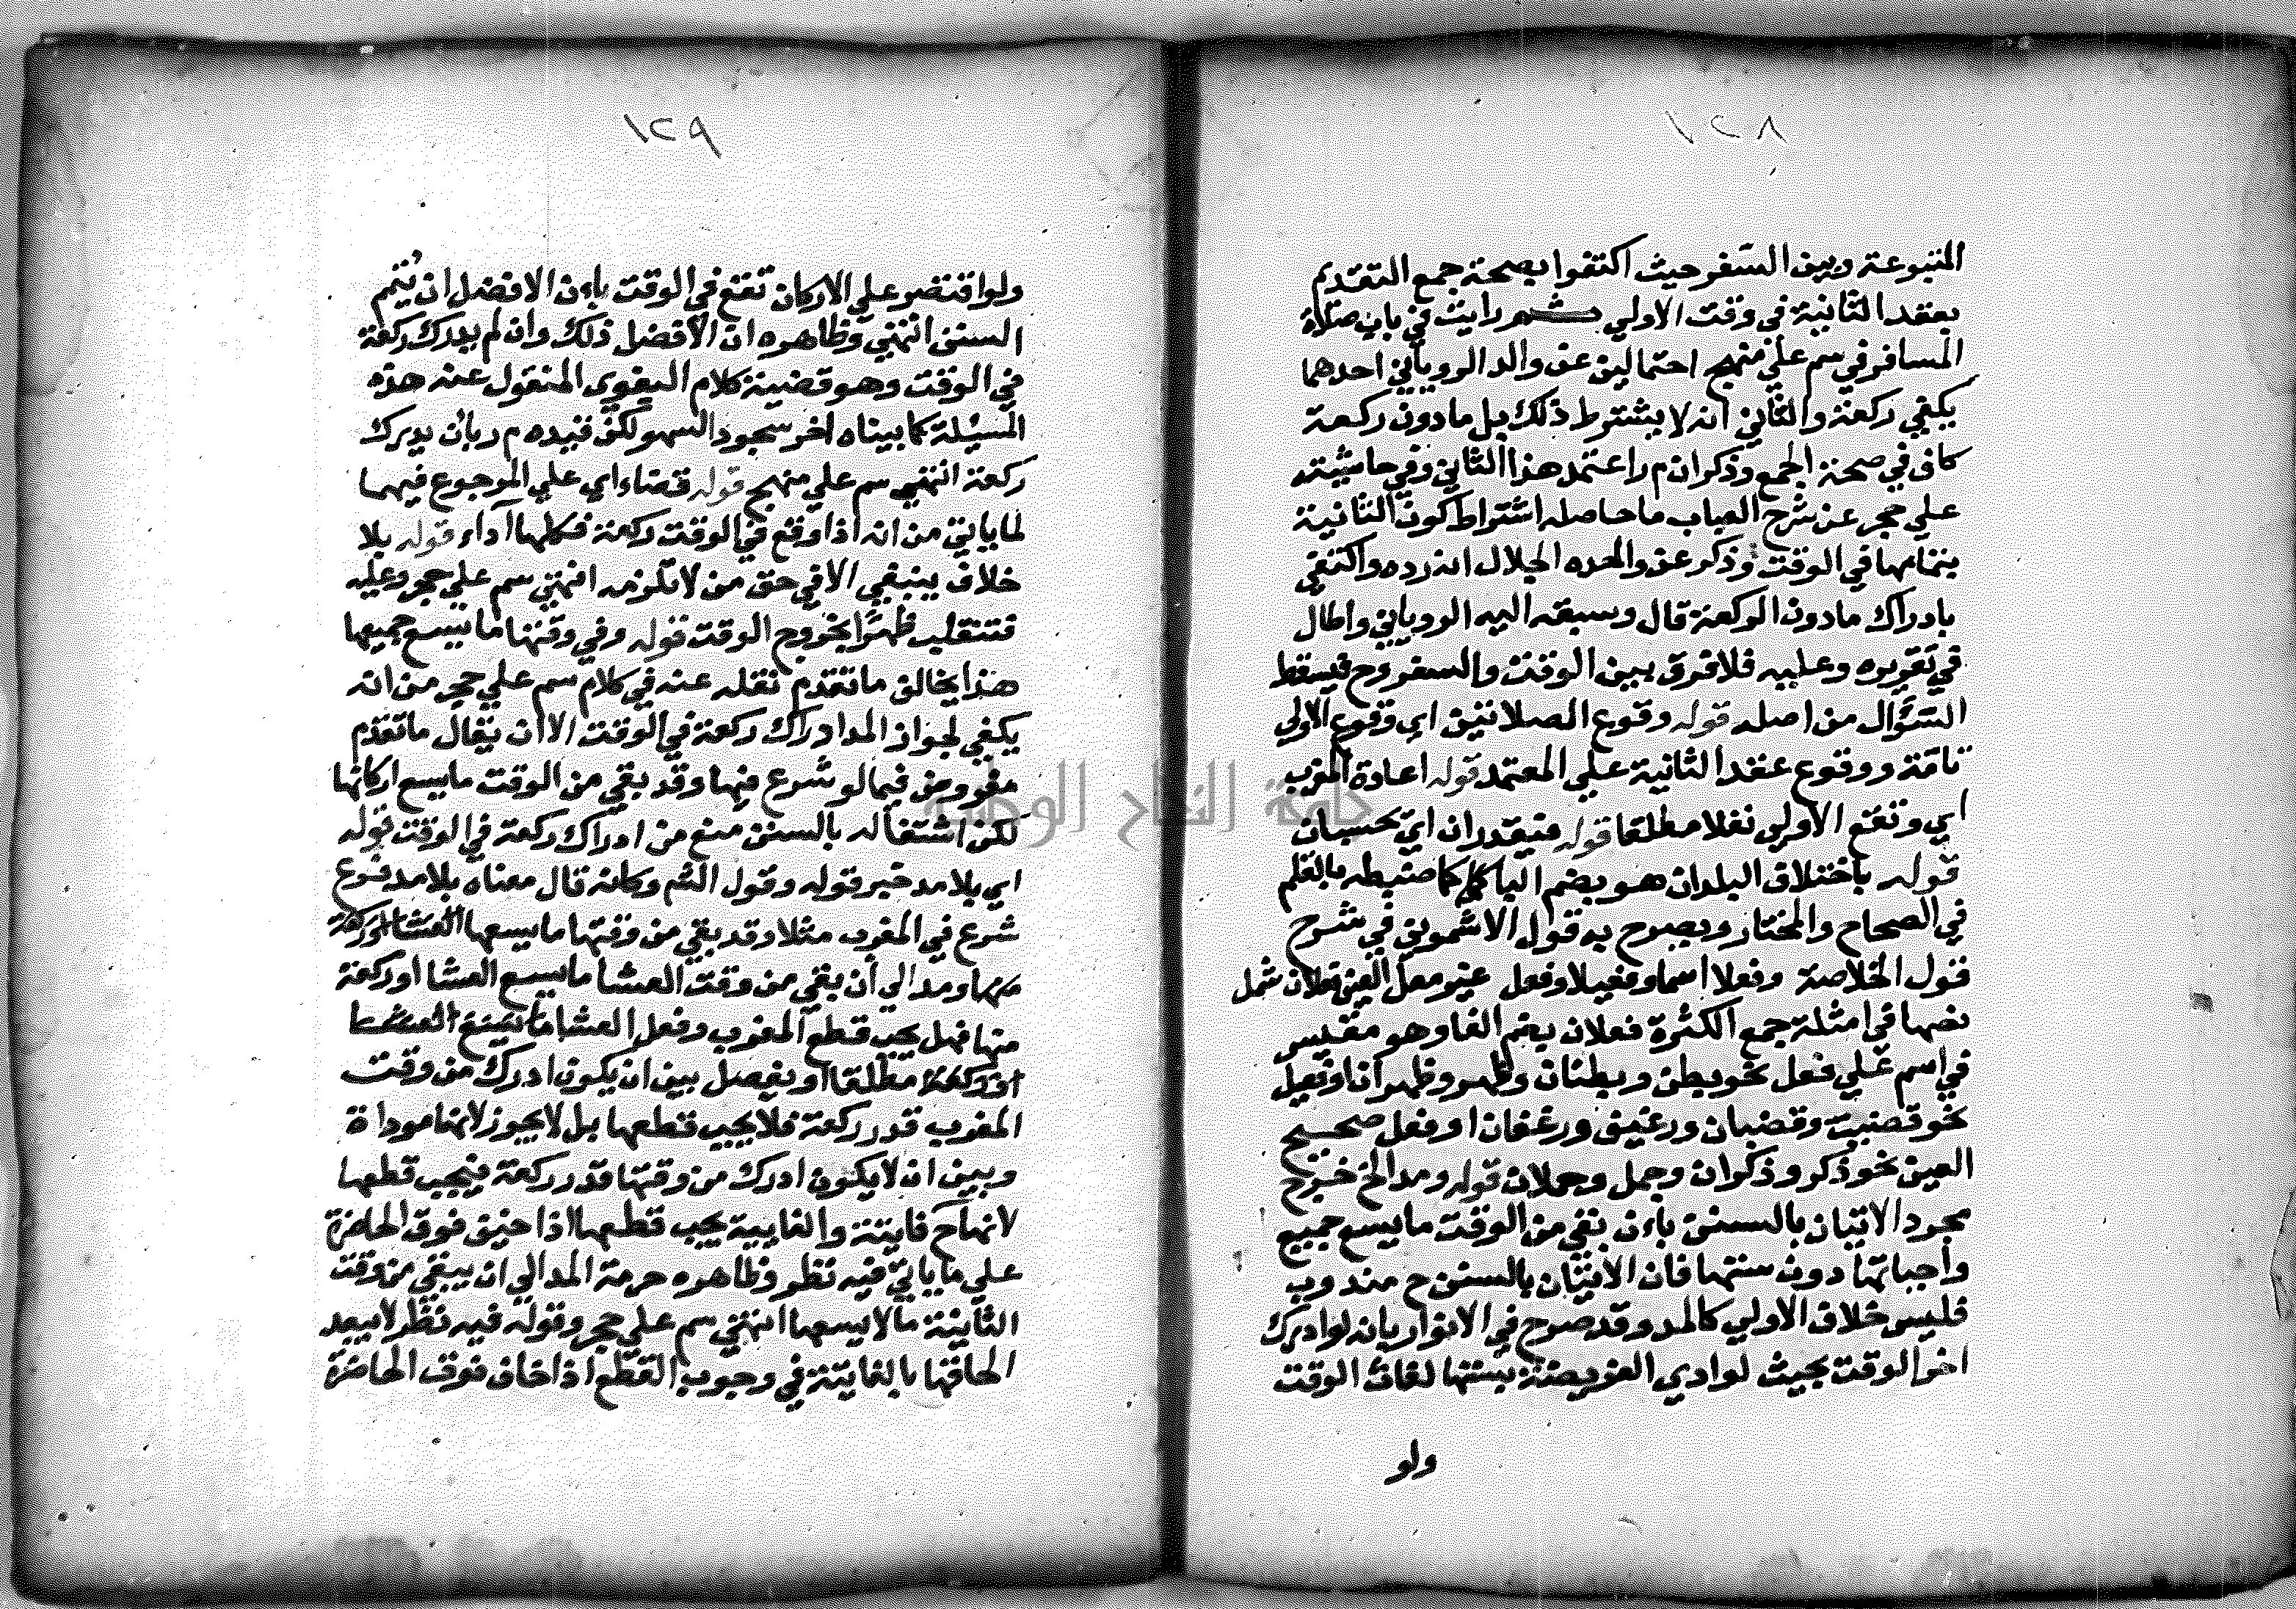 ١٢٨
المتبوعة وبين السفر حيث اكتفوا بصحة جمع التقديم
بعقد الثانية في وقت الاولي ثم رايت في باب صلاة
المسافر في سم علي منهج احتمالين عن والد الروياني احدهما
يكفي ركعة والثاني انه لا يشترط ذلك بل ما دون ركعة
كاف في صحة الجمع وذكر ان م ر اعتمد هذا الثاني وفي حاشيته
علي حجر عن شرح العباب ما حاصله اشتراط كون الثانية
بتمامها في الوقت وذكر عن والده الجلال انه رده واكتفي
بادراك ما دون الركعة قال وسبقه اليه الروياني واطال
في تقريره وعليه فلا فرق بين الوقت والسفر وح فيسقط
السؤال من اصله قوله وقوع الصلاتين اي وقوع الاولي
تامة ووقوع عقد الثانية علي المعتمد قوله اعادة المغرب
اي وتقع الاولي نفلا مطلقا قوله فيقدران اي يحسبان
قوله باختلاف البلدان هو بضم البا كما ضبطه بالقلم
في الصحاح والمختار ويصرح به قول الاشموني في شرح
قول الخلاصة وفعلا اسما وفعيلا وفعل غير معل العين فعلان شمل
نصها في امثلة جمع الكثرة فعلان بضم الفا وهو مقيس
في اسم علي فعل نحو بطن وبطنان وظهر وظهرانا وفعيل
نحو قضيب وقضبان ورغيف ورغفان او فعل صحيح
العين نحو ذكر وذكران وجمل وجملان قوله ومد الخ خرج
مجرد الاتيان بالسنن باءن بقي من الوقت ما يسع جميع
واجباتها دون سنتها فان الاتيان بالسنن ح مندوب
فليس خلاف الاولي كالمد وقد صرح في الانوار بانه لو ادرك
اخر الوقت بحيث لو ادي الفريضة بسنتها لفات الوقت
ولو
١٢٩
ولو اقتصر علي الاركان تقع في الوقت باءن الافضل ان يتمم
السنن انتهي وظاهره ان الافضل ذلك وان لم يدرك ركعة
في الوقت وهو قضية كلام البغوي المنقول عنه هذه
المسيلة كما بيناه اخر سجود السهو لكن قيده م ر بان يدرك
ركعة انتهي سم علي منهج قوله قضاء اي علي المرجوع فيهما
لما ياتي من انه اذا وقع في الوقت ركعة فكلها اداء قوله بلا
خلاف ينبغي الا في حق من لا تلزمه انتهي سم علي حجر وعليه
فتنقلب ظهرا بخروج الوقت قوله وفي وقتها ما يسع جميعها
هذا يخالف ما تقدم نقله عنه في كلام سم علي حجر من انه
يكفي لجواز المد ادراك ركعة في الوقت الا ان يقال ما تقدم
مفروض فيما لو شرع فيها وقد بقي من الوقت ما يسع اركانها
لكن اشتغاله بالسنن منع من ادراك ركعة في الوقت قوله
اي بلا مد خبر قوله وقول الشم وكانه قال معناه بلا مد فرع
شرع في المغرب مثلا وقد بقي من وقتها ما يسعها العشا او ركعة
منها ومد الي ان بقي من وقت العشا ما يسع العشا او ركعة
منها فهل يجب قطع المغرب وفعل العشا ما يسع العشا
او ركعة مطلقا او يفصل بين ان يكون ادرك من وقت
المغرب قدر ركعة فلا يجب قطعها بل لا يجوز لانها موداة
وبين ان لا يكون ادرك من وقتها قدر ركعة فيجب قطعها
لانها ح فايتة والفايتة يجب قطعها اذا خيف فوق الحاضرة
علي ما ياتي فيه نظر وظاهره حرمة المد الي ان يبقي من وقت
الثانية ما لا يسعها انتهي سم علي حجر وقوله فيه نظر لا يبعد
الحاقها بالفايتة في وجوب القطع اذا خاف فوت الحاضرة
جامعة النجاح الوطنية